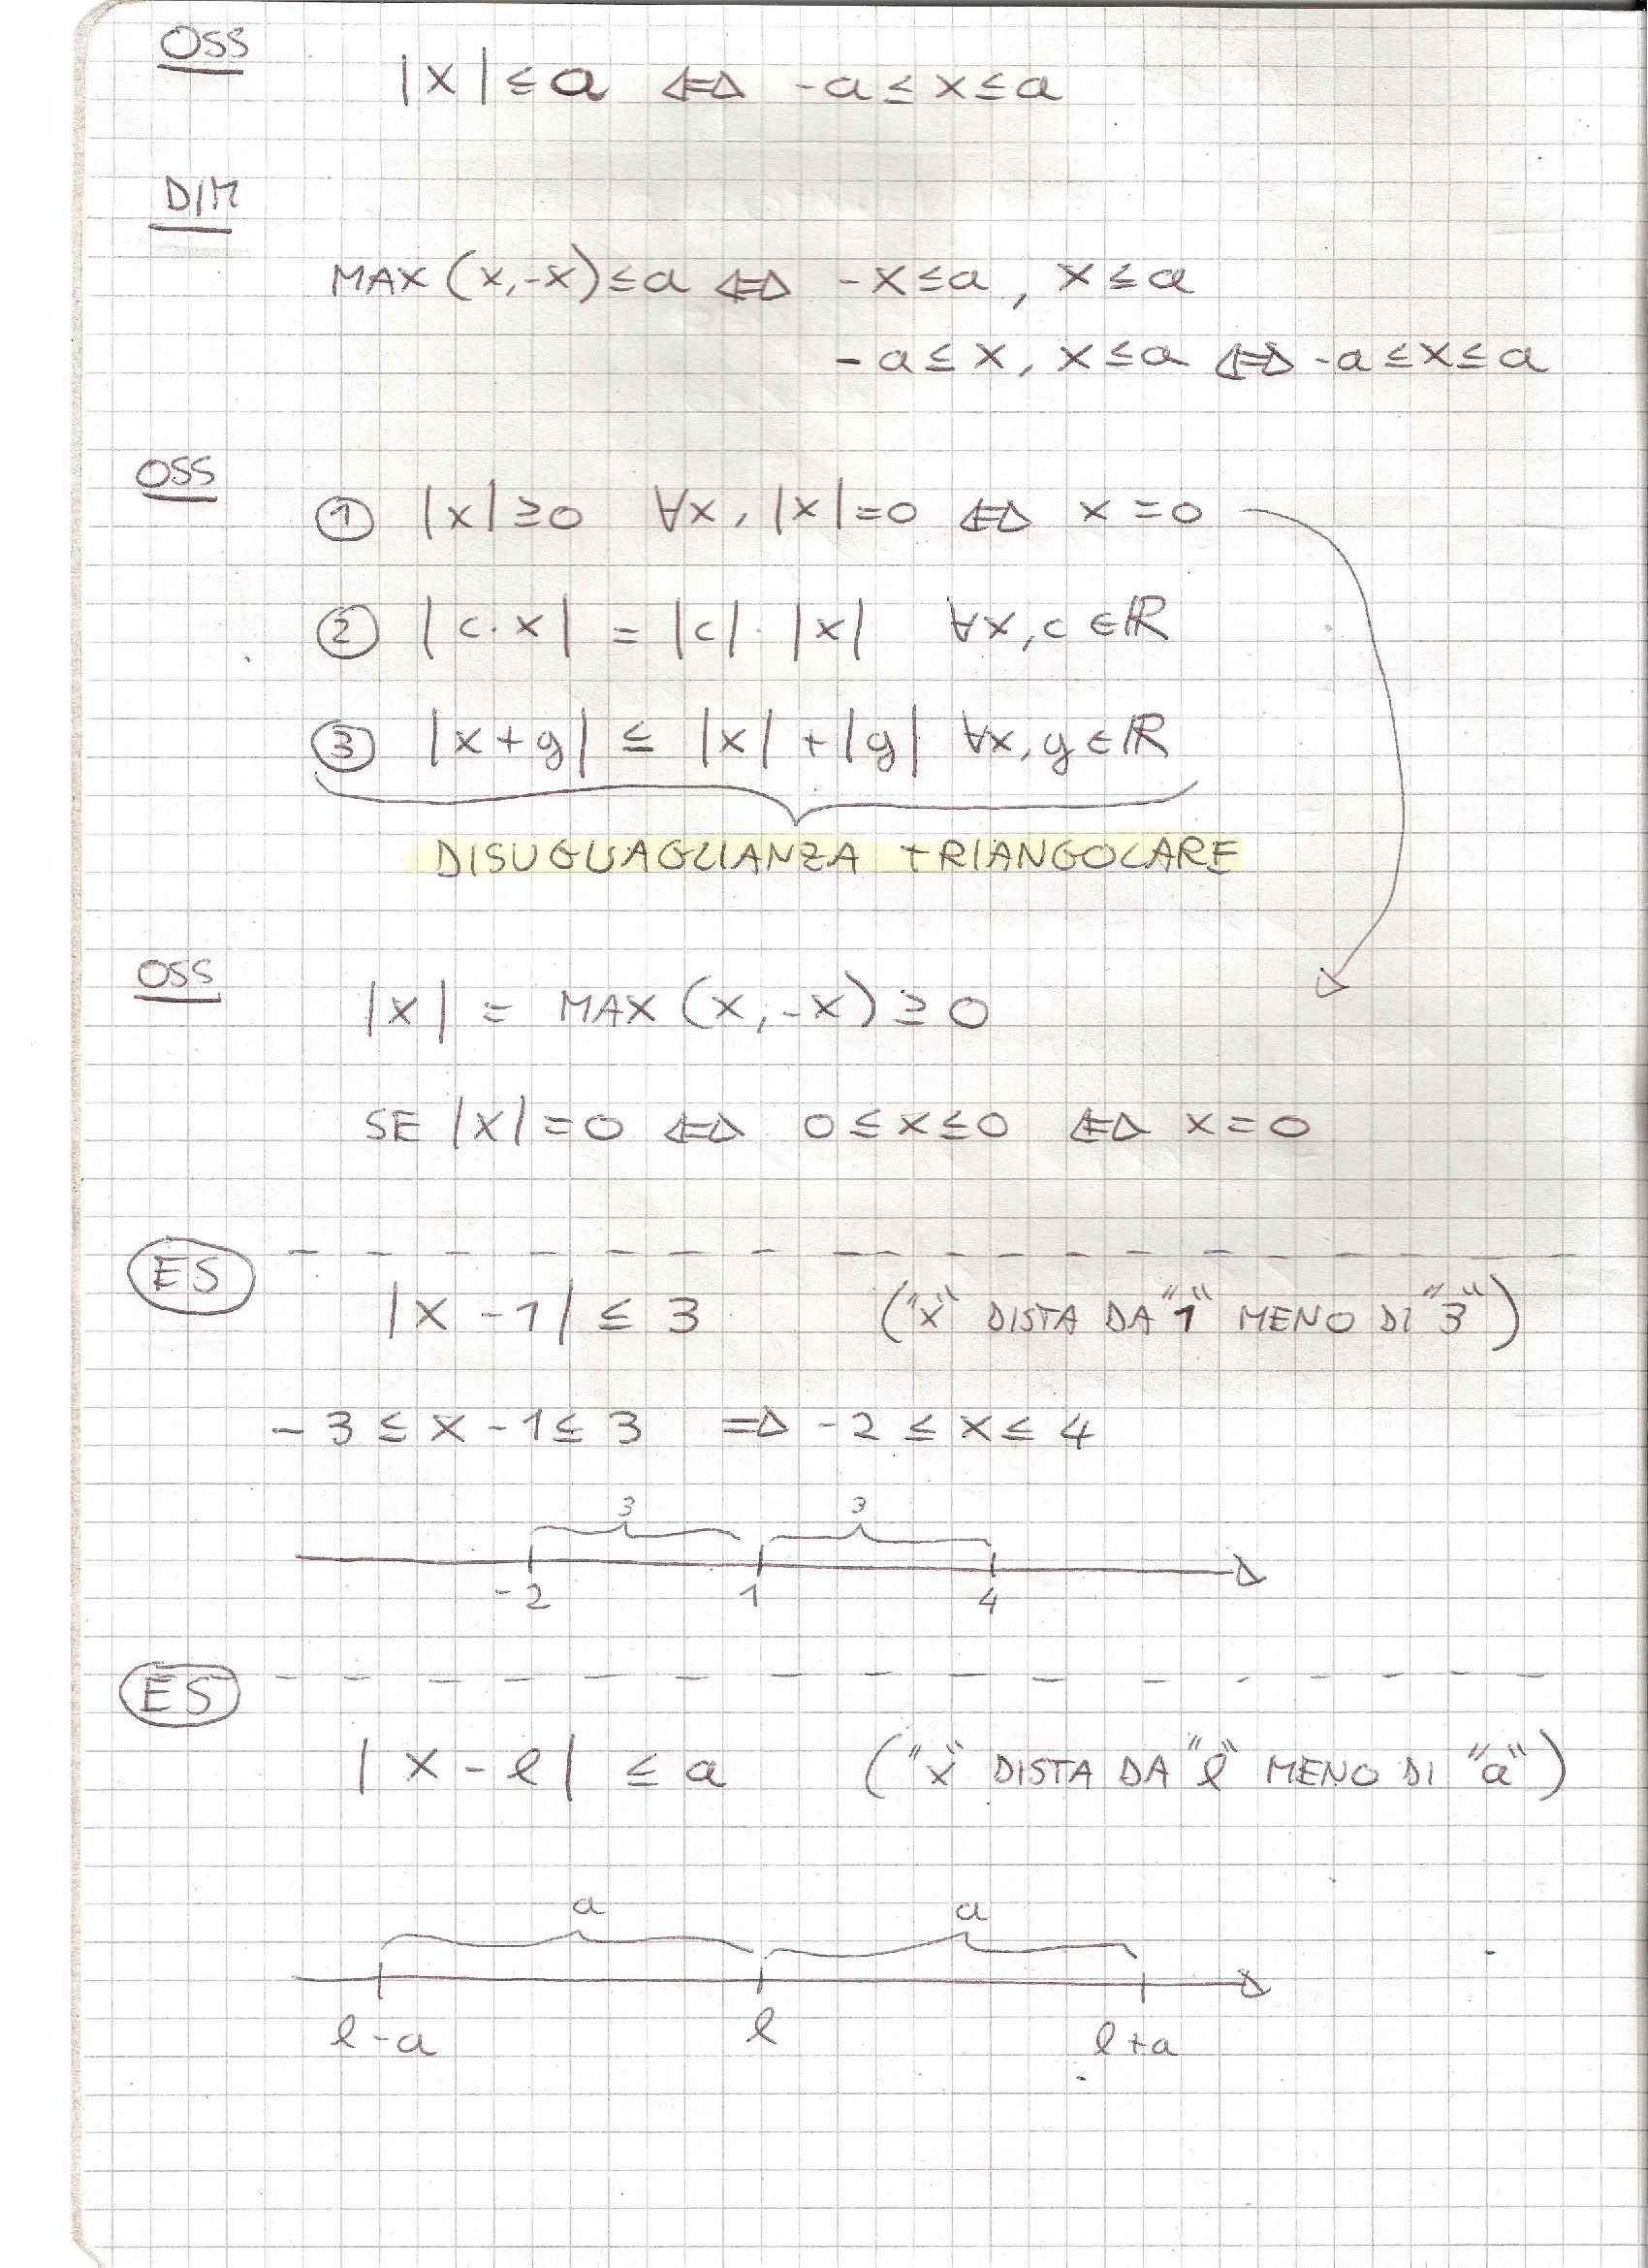 OSS
|x| ≤ a ⇔ -a ≤ x ≤ a
DIM
MAX (x,-x) ≤ a ⇔ -x ≤ a , x ≤ a
-a ≤ x, x ≤ a ⇔ -a ≤ x ≤ a
OSS
① |x| ≥ 0 ∀x, |x| = 0 ⇔ x = 0
② |c·x| = |c|·|x| ∀x, c ∈ ℝ
③ |x+y| ≤ |x| + |y| ∀x, y ∈ ℝ
DISUGUAGLIANZA TRIANGOLARE
OSS
|x| = MAX (x,-x) ≥ 0
SE |x| = 0 ⇔ 0 ≤ x ≤ 0 ⇔ x = 0
ES
|x - 1| ≤ 3 ("x" DISTA DA "1" MENO DI "3")
-3 ≤ x - 1 ≤ 3 ⇒ -2 ≤ x ≤ 4
3 3
-2 1 4
ES
|x - l| ≤ a ("x" DISTA DA "l" MENO DI "a")
a a
l-a l l+a